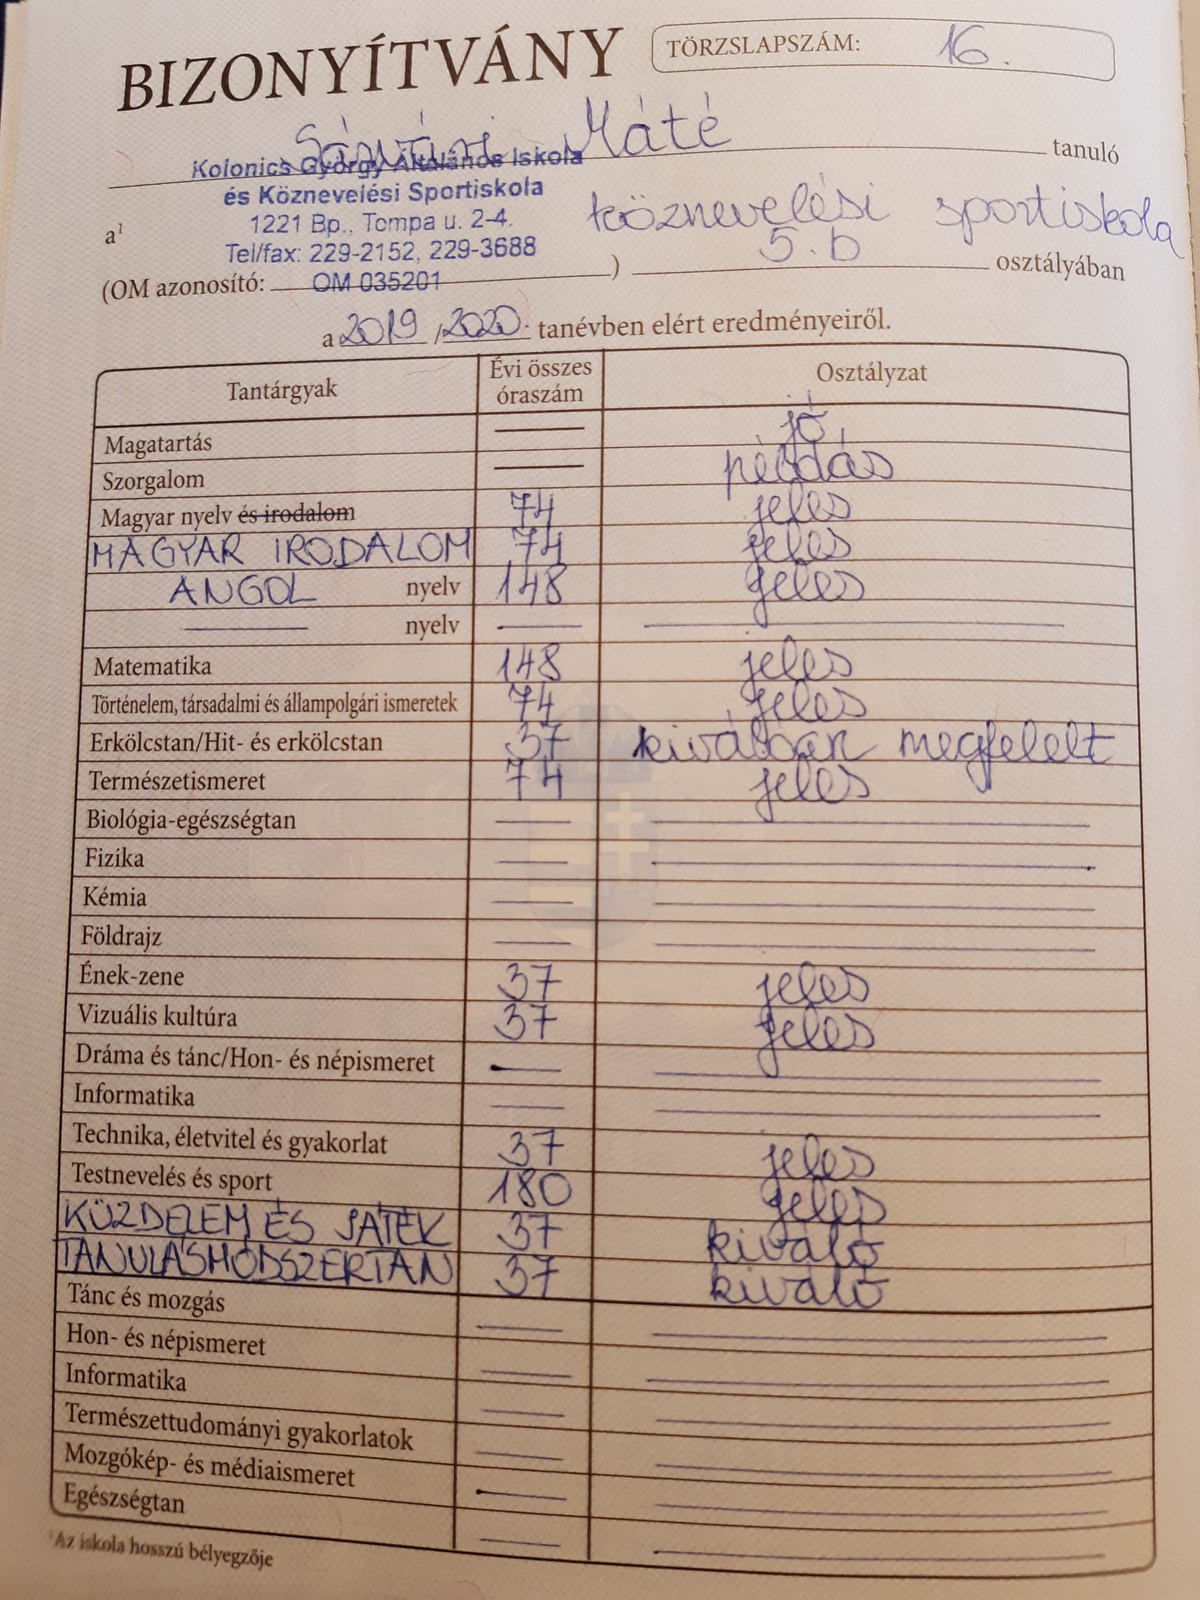 BIZONYÍTVÁNY
TÖRZSLAPSZÁM: 16.
Máté tanuló
Kolonics György Általános Iskola
és Köznevelési Sportiskola
1221 Bp., Tompa u. 2-4.
Tel/fax: 229-2152, 229-3688
a¹ köznevelési sportiskola
(OM azonosító: OM 035201) 5. b osztályában
a 2019/2020. tanévben elért eredményeiről.
Tantárgyak Évi összes óraszám Osztályzat
Magatartás — jó
Szorgalom — példás
Magyar nyelv és irodalom 74 jeles
MAGYAR IRODALOM 74 jeles
ANGOL nyelv 148 jeles
— nyelv — —
Matematika 148 jeles
Történelem, társadalmi és állampolgári ismeretek 74 jeles
Erkölcstan/Hit- és erkölcstan 37 kiválóan megfelelt
Természetismeret 74 jeles
Biológia-egészségtan — —
Fizika — —
Kémia — —
Földrajz — —
Ének-zene 37 jeles
Vizuális kultúra 37 jeles
Dráma és tánc/Hon- és népismeret — —
Informatika — —
Technika, életvitel és gyakorlat 37 jeles
Testnevelés és sport 180 jeles
KÜZDELEM ÉS JÁTÉK 37 kiváló
TANULÁSMÓDSZERTAN 37 kiváló
Tánc és mozgás — —
Hon- és népismeret — —
Informatika — —
Természettudományi gyakorlatok — —
Mozgókép- és médiaismeret — —
Egészségtan — —
¹Az iskola hosszú bélyegzője